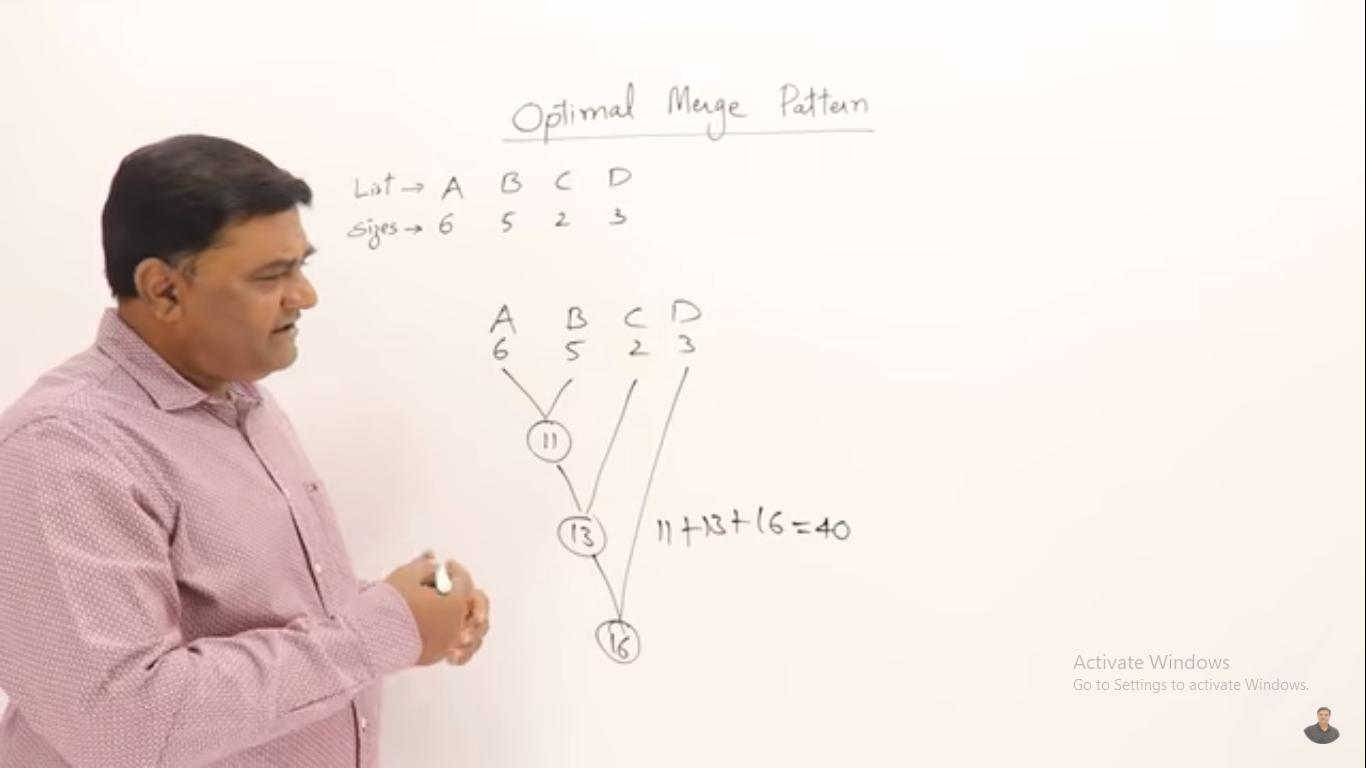 Optimal Merge Pattern
List → A B C D
Sizes → 6 5 2 3
A B C D
6 5 2 3
11
13
11+13+16=40
16
Activate Windows
Go to Settings to activate Windows.